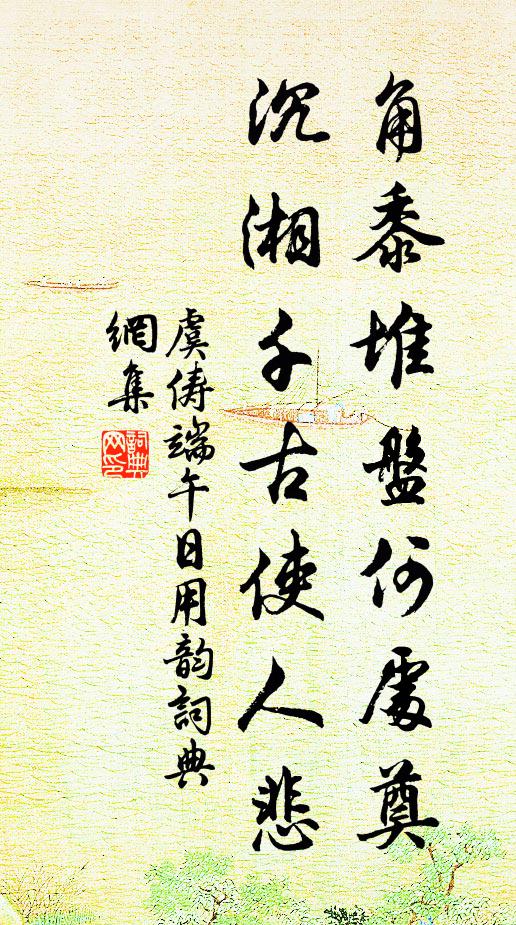 角黍堆盤何處奠
沉湘千古使人悲
虞儔端午日用韵詞典
網集
詞典
网印